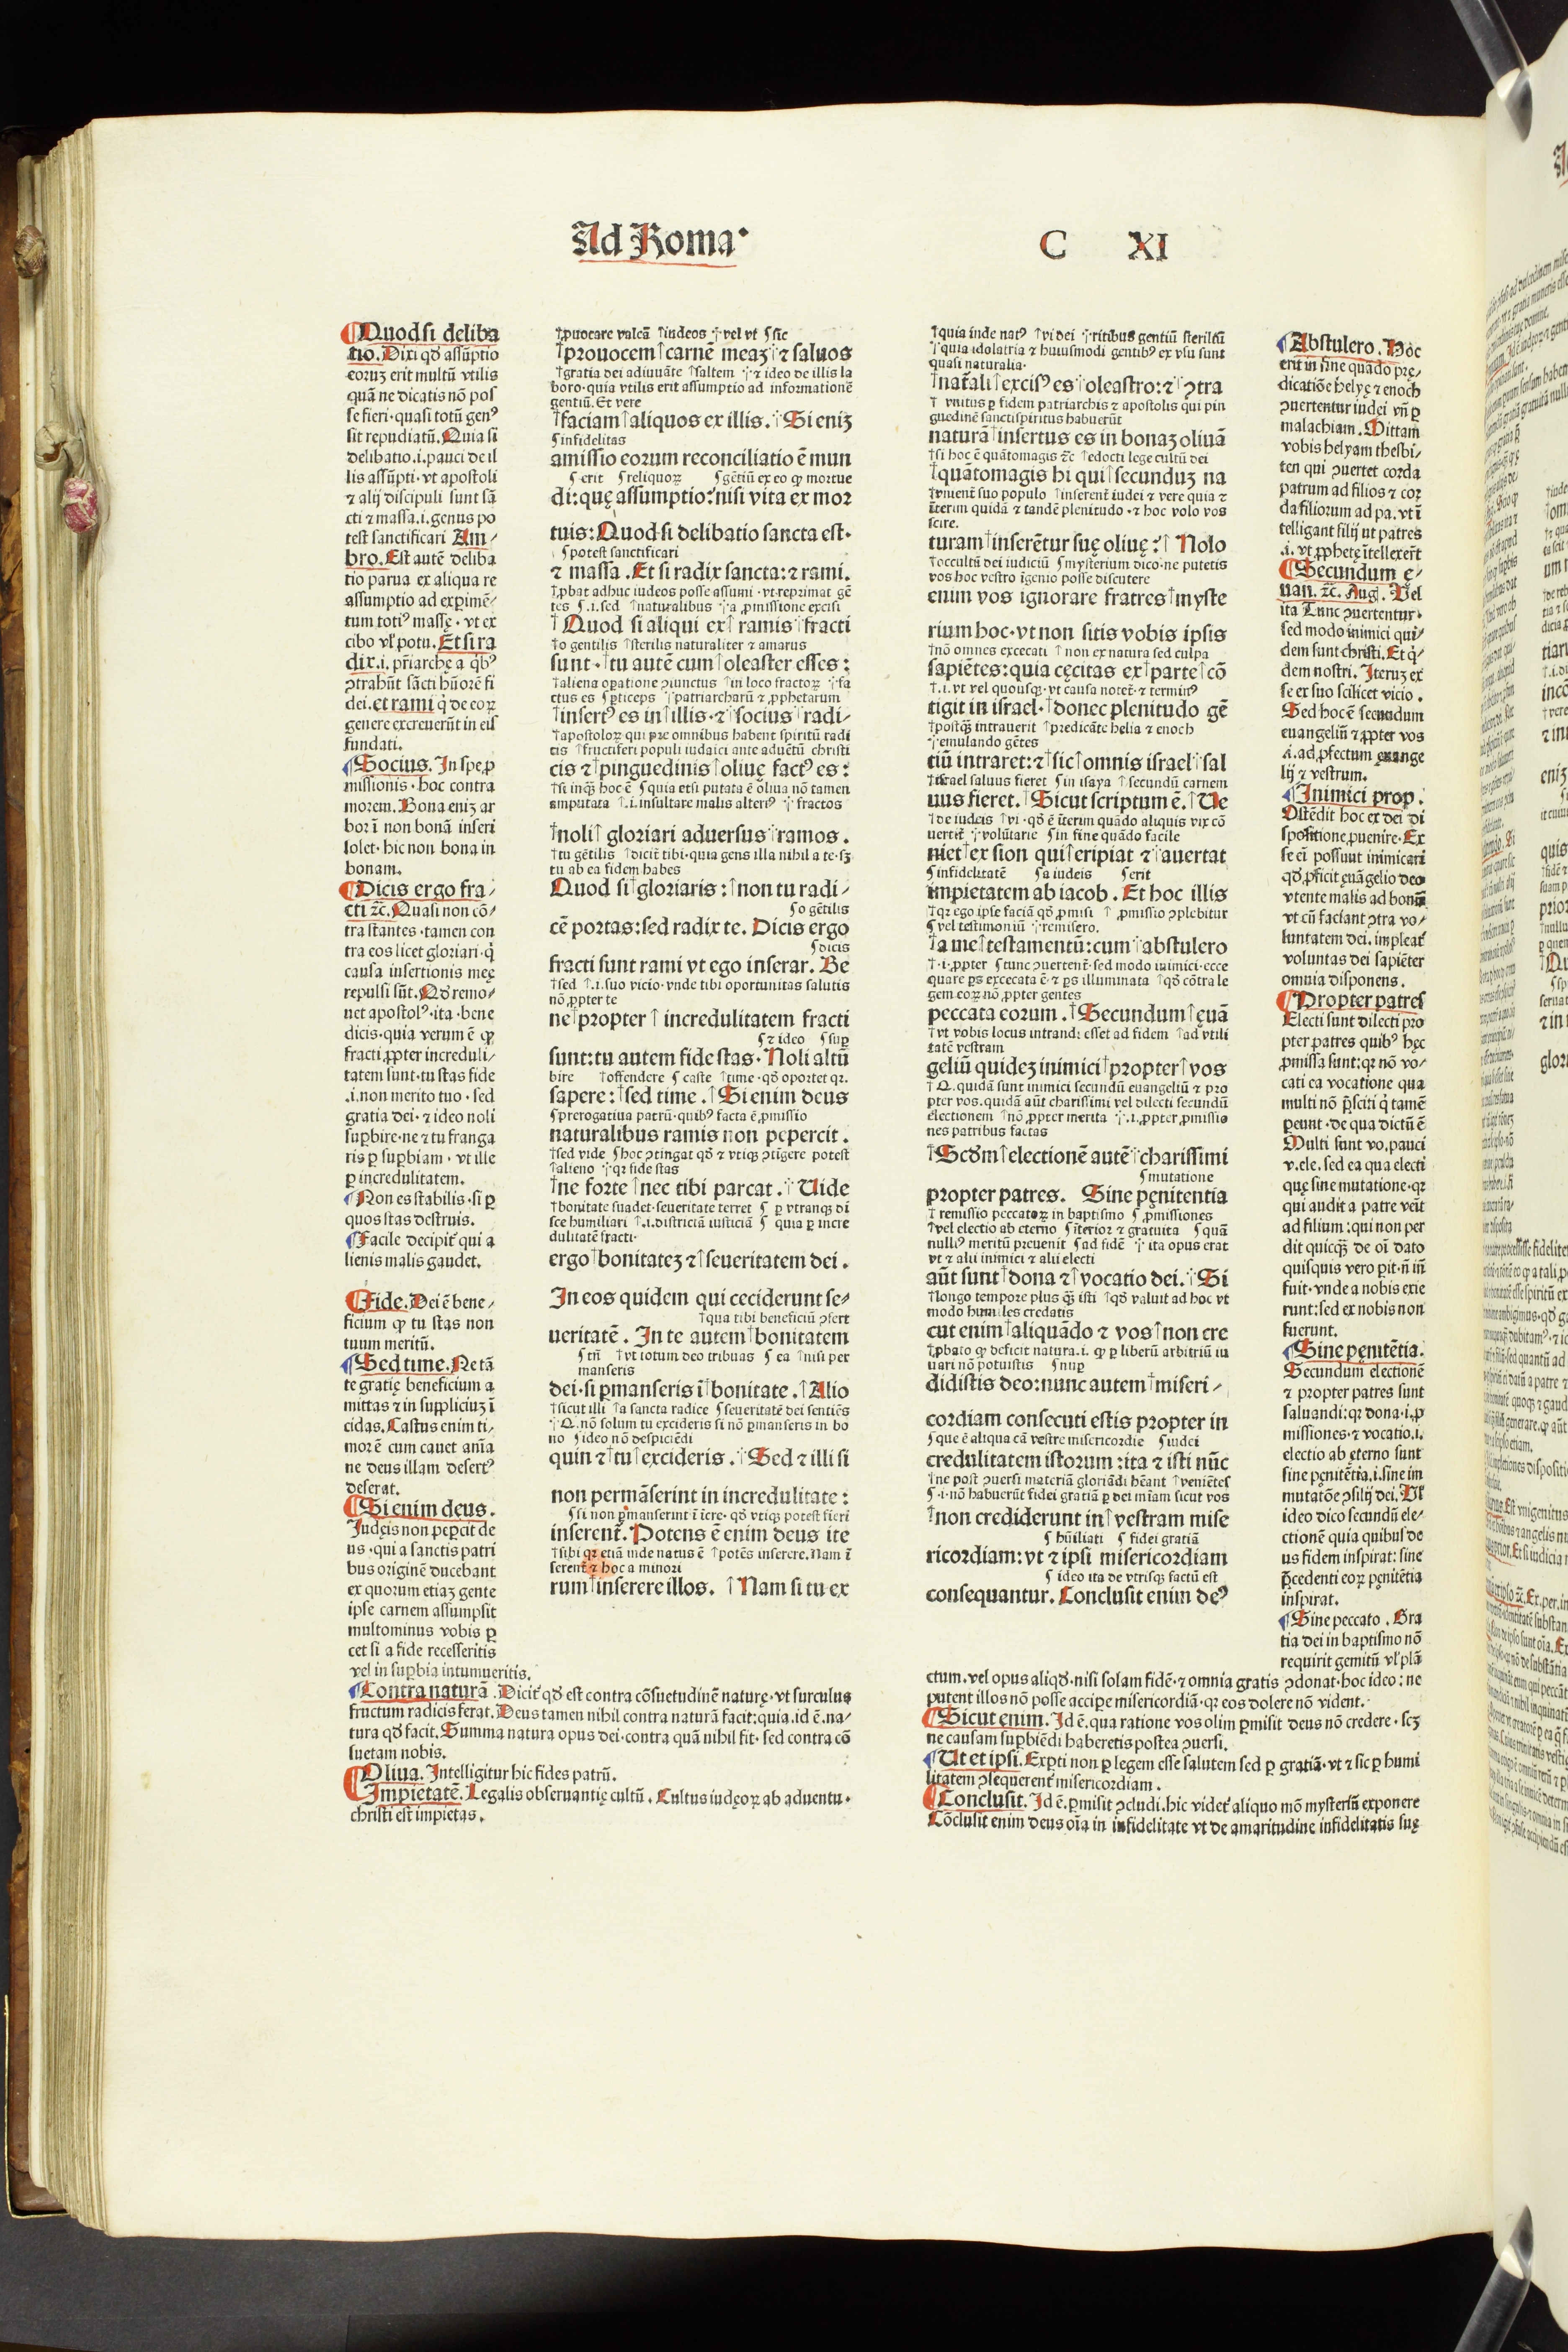 Ad Roma·
C XI
Quodsi deliba
tio. Dixi qđ assūptio
eoruꝫ erit multū vtilis
quā ne dicatis nō pos
se fieri· quasi totū genꝰ
sit repudiatū. Quia si
delibatio .i. pauci de il
lis assūpti· vt apostoli
⁊ alij discipuli sunt sā
cti ⁊ massa .i. genus po
test sanctificari Am-
bro. Est autē deliba
tio parua ex aliqua re
assumptio ad exꝑimē-
tum totiꝰ massę · vt ex
cibo vl' potu. Et si ra
dix .i. pr̄iarche a q̇bꝰ
ꝯtrahūt sācti hūorē fi
dei. et rami q̇ de eoꝝ
genere excreuerūt in eis
fundati.
Socius. In spe ꝓ
missionis · hoc contra
morem. Bona eniꝫ ar
bor ī non bonā inseri
solet· hic non bona in
bonam.
Dicis ergo fra-
cti ⁊c̄. Quasi non cō-
tra stantes · tamen con
tra eos licet gloriari· q̇
causa insertionis meę
repulsi sūt. Qđ remo-
uet apostolꝰ· ita · bene
dicis· quia verum ē ꝙ
fracti ꝓpter increduli-
tatem sunt· tu stas fide
.i. non merito tuo · sed
gratia dei· ⁊ ideo noli
suꝑbire· ne ⁊ tu franga
ris ꝑ suꝑbiam · vt ille
ꝑ incredulitatem.
Non es stabilis· si ꝑ
quos stas destruis.
Facile decipit̄ qui a
lienis malis gaudet.
Fide. Dei ē bene-
ficium ꝙ tu stas non
tuum meritū.
Sed time. Ne tā
te gratię beneficium a
mittas ⁊ in suppliciuꝫ ī
cidas. Castus enim ti-
mor ē cum cauet anīa
ne deus illam desertꝰ
deserat.
Si enim deus.
Judęis non peꝑcit de
us · qui a sanctis patri
bus originē ducebant
ex quorum etiaꝫ gente
ipse carnem assumpsit
multominus vobis ꝑ
cet si a fide recesseritis
vel in suꝑbia intumueritis.
Contra naturā. Dicit̄ qđ est contra cōsuetudinē naturę· vt surculus
fructum radicis ferat. Deus tamen nihil contra naturā facit: quia. id ē. na-
tura qđ facit. Summa natura opus dei· contra quā nihil fit· sed contra cō
suetam nobis.
Oliua. Intelligitur hic fides patrū.
Impietatē. Legalis obseruantię cultū. Cultus iudęoꝝ ab aduentu·
christi est impietas.
†ꝓuocare valeā †iudeos ⸪vel vt ſsic
†prouocem †carnē meaꝫ ⸪⁊ saluos
†gratia dei adiuuāte †saltem ⸪⁊ ideo de illis la
boro· quia vtilis erit assumptio ad informationē
gentiū. Et vere
†faciam †aliquos ex illis. ⸪Si eniꝫ
ſinfidelitas
amissio eorum reconciliatio ē mun
ſerit ſreliquoꝝ ſgētiū ex eo ꝙ mortue
di: quę assumptio: nisi vita ex mor
tuis: Quod si delibatio sancta est·
ſpotest sanctificari
⁊ massa. Et si radix sancta: ⁊ rami.
†ꝓbat adhuc iudeos posse assumi · vt reprimat gē
tes ſ.i. sed †naturalibus ⸪a ꝓmissione excisi
†Quod si aliqui ex †ramis ⸪fracti
†o gentilis †sterilis naturaliter ⁊ amarus
sunt· †tu autē cum †oleaster esses:
†aliena oꝑatione ꝯiunctus †in loco fractoꝝ ⸪fa
ctus es ſꝑticeps ⸪patriarcharū ⁊ ꝓphetarum
†insertꝰ es in †illis· ⁊ ⸪socius ⸪radi-
†apostoloꝝ qui pre omnibus habent spiritū radi
cis †fructiferi populi iudaici ante aduētū christi
cis ⁊ †pinguedinis †oliuę factꝰ es:
†si inqꝫ hoc ē ſquia etsi putata ē oliua nō tamen
amputata †.i. insultare malis alteriꝰ ⸪fractos
†noli † gloriari aduersus ⸪ramos.
†tu gētilis †dicit̄ tibi· quia gens illa nihil a te· sꝫ
tu ab ea fidem habes
Quod si †gloriaris: †non tu radi-
ſo gētilis
cē portas: sed radix te. Dicis ergo
ſdicis
fracti sunt rami vt ego inserar. Be
†sed †.i. suo vicio· vnde tibi oportunitas salutis
nō ꝓpter te
ne †propter † incredulitatem fracti
ſ⁊ ideo ſsuꝑ
sunt: tu autem fide stas. Noli altū
bire †offendere ſcaste †time· qđ oportet qꝛ.
sapere: †sed time. †Si enim deus
ſprerogatiua patrū· quibꝰ facta ē ꝓmissio
naturalibus ramis non pepercit.
†sed vide ſhoc ꝯtingat qđ ⁊ vtiqꝫ ꝯtīgere potest
†alieno ⸪qꝛ fide stas
†ne forte †nec tibi parcat. ⸪Uide
†bonitate suadet· seueritate terret ſꝑ vtranqꝫ di
sce humiliari †.i. districtiā iusticiā ſquia ꝑ incre
dulitatē fracti·
ergo †bonitateꝫ ⁊ †seueritatem dei.
In eos quidem qui ceciderunt se-
†qua tibi beneficiū ꝯfert
ueritatē. In te autem †bonitatem
ſtn̄ †vt totum deo tribuas ſea †nisi per
manseris
dei· si ꝑmanseris ī †bonitate. †Alio
†sicut illi †a sancta radice ſseueritatē dei sentiēs
⸪Q. nō solum tu excideris si nō ꝑmanseris in bo
no ſideo nō despiciēdi
quin ⁊ †tu †excideris. ⸪Sed ⁊ illi si
non permāserint in incredulitate:
ſsi non ꝑmanserint ī īcre· qđ vtiqꝫ potest fieri
inserent̄. Potens ē enim deus ite
†sibi qꝛ etiā inde natus ē †potēs inserere. Nam ī
serent̄ ⁊ hoc a minori
rum †inserere illos. †Nam si tu ex
†quia inde natꝰ †vi dei ⸪ritibus gentiū steriliū
⸪quia idolatria ⁊ huiusmodi gentibꝰ ex vsu sunt
quasi naturalia·
†nat̄ali †excisꝰ es ⸪oleastro: ⁊ ⸪ꝯtra
† vnitus ꝑ fidem patriarchis ⁊ apostolis qui pin
guedinē sanctispiritus habuerūt
naturā †insertus es in bonaꝫ oliuā
†si hoc ē quātomagis ⁊c̄ †edocti lege cultū dei
†quātomagis hi qui †secunduꝫ na
†vnient̄ suo populo †inserent̄ iudei ⁊ vere quia ⁊
īterim quidā ⁊ tandē plenitudo · ⁊ hoc volo vos
scire.
turam †inserētur suę oliuę: † Nolo
†occultū dei iudiciū ſmysterium dico· ne putetis
vos hoc vestro īgenio posse discutere
enim vos ignorare fratres †myste
rium hoc· vt non sitis vobis ipsis
†nō omnes excecati † non ex natura sed culpa
sapiētes: quia cęcitas ex †parte †cō
†.i. vt vel quousqꝫ· vt causa notet̄· ⁊ terminꝰ
tigit in israel· †donec plenitudo gē
†postqꝫ̄ intrauerit †predicāte helia ⁊ enoch
⸪emulando gētes
tiū intraret: ⁊ †sic †omnis israel ⸪sal
†israel saluus fieret ſin isaya †secundū carnem
uus fieret. †Sicut scriptum ē. †Ue
†de iudeis †vi · qđ ē īterim quādo aliquis vix cō
uertit̄ ⸪volūtarie ſin fine quādo facile
niet †ex sion qui †eripiat ⁊ ⸪auertat
ſinfidelitatē ſa iudeis ſerit
impietatem ab iacob. Et hoc illis
†qꝛ ego ipse faciā qđ ꝓmisi † ꝓmissio ꝯplebitur
ſvel testimoniū ⸪remisero.
†a me †testamentū: cum ⸪abstulero
†·i· ꝓpter ſtunc ꝯuertent̄· sed modo inimici· ecce
quare ꝑs excecata ē· ⁊ ꝑs illuminata †qđ cōtra le
gem eoꝝ nō ꝓpter gentes
peccata eorum. †Secundum †euā
†vt vobis locus intrandi esset ad fidem †ad vtili
tatē vestram
geliū quideꝫ inimici †propter †vos
†Q. quidā sunt inimici secundū euangeliū ⁊ pro
pter vos. quidā aūt charissimi vel dilecti secundū
electionem †nō ꝓpter merita ⸪.i. ꝓpter ꝓmissio
nes patribus factas
†Scđm †electionē autē ⸪charissimi
ſmutatione
propter patres. Sine pęnitentia
† remissio peccatoꝝ in baptismo ſꝓmissiones
†vel electio ab eterno ſīterior ⁊ gratuita ſquā
nulliꝰ meritū preuenit ſad fidē ⸪ita opus erat
vt ⁊ alii inimici ⁊ alii electi
aūt sunt †dona ⁊ †vocatio dei. ⸪Si
†longo tempore plus qꝫ̄ isti †qđ valuit ad hoc vt
modo humiles credatis
cut enim †aliquādo ⁊ vos †non cre
†ꝓbato ꝙ deficit natura .i. ꝙ ꝑ liberū arbitriū iu
uari nō potuistis ſnuꝑ
didistis deo: nunc autem †miseri-
cordiam consecuti estis propter in
ſque ē aliqua cā vestre misericordie ſiudei
credulitatem istorum: ita ⁊ isti nūc
†ne post ꝯuersi materiā gloriādi hēant †veniētes
ſ·i· nō habuerūt fidei gratiā ꝑ dei mīam sicut vos
†non crediderunt in †vestram mise
ſhūiliati ſfidei gratiā
ricordiam: vt ⁊ ipsi misericordiam
ſideo ita de vtrisqꝫ factū est
consequantur. Conclusit enim deꝰ
Abstulero. Hoc
erit in fine quādo prę-
dicatiōe helyę ⁊ enoch
ꝯuertentur iudei vn̄ ꝑ
malachiam. Mittam
vobis helyam thesbi-
ten qui ꝯuertet corda
patrum ad filios ⁊ cor
da filiorum ad pa. vt ī
telligant filij vt patres
.i. vt ꝓphetę ītellexer̄t
Secundum e-
uan. ⁊c̄. Aug. Vel
ita Tunc ꝯuertentur·
sed modo inimici qui-
dem sunt christi. Et q̇-
dem nostri. Iteruꝫ ex
se ex suo scilicet vicio.
Sed hoc ē secundum
euangeliū ⁊ ꝓpter vos
.i. ad ꝓfectum euange
lij ⁊ vestrum.
Inimici prop.
Ostēdit hoc ex dei di
spositione ꝓuenire. Ex
se ei possunt inimicari
qđ ꝓficit euāgelio deo
vtente malis ad bonū
vt cū faciant ꝯtra vo-
luntatem dei. impleat̄
voluntas dei sapiēter
omnia disponens.
Propter patres
Electi sunt dilecti pro
pter patres quibꝰ hęc
ꝓmissa sunt: qꝛ nō vo-
cati ea vocatione qua
multi nō p̄sciti q̇ tamē
ꝑeunt · de qua dictū ē
Multi sunt vo. pauci
v. ele. sed ea qua electi
quę sine mutatione· qꝛ
qui audit a patre veūt
ad filium: qui non per
dit quicqꝫ̄ de oī dato
quisquis vero ꝑit· n̄ īn̄
fuit· vnde a nobis exie
runt: sed ex nobis non
fuerunt.
Sine pęnitētia.
Secundum electionē
⁊ propter patres sunt
saluandi: qꝛ dona· i. ꝓ
missiones· ⁊ vocatio .i.
electio ab ęterno sunt
sine pęnitētia .i. sine im
mutatōe ꝯsilij dei. Vl'
ideo dico secundū ele-
ctionē quia quibus de
us fidem inspirat: sine
p̄cedenti eoꝝ pęnitētia
inspirat.
Sine peccato. Gra
tia dei in baptismo nō
requirit gemitū vl' plā
ctum. vel opus aliqđ· nisi solam fidē· ⁊ omnia gratis ꝯdonat· hoc ideo: ne
putent illos nō posse accipe misericordiā· qꝛ eos dolere nō vident.
Sicut enim. Id ē. qua ratione vos olim ꝑmisit deus nō credere · scꝫ
ne causam suꝑbiēdi haberetis postea ꝯuersi.
Ut et ipsi. Exꝑti non ꝑ legem esse salutem sed ꝑ gratiā· vt ⁊ sic ꝑ humi
litatem ꝯsequerent̄ misericordiam.
Conclusit. Id ē. ꝑmisit ꝯcludi. hic videt̄ aliquo mō mysteriū exponere
Cōclusit enim deus oīa in infidelitate vt de amaritudine infidelitatis suę